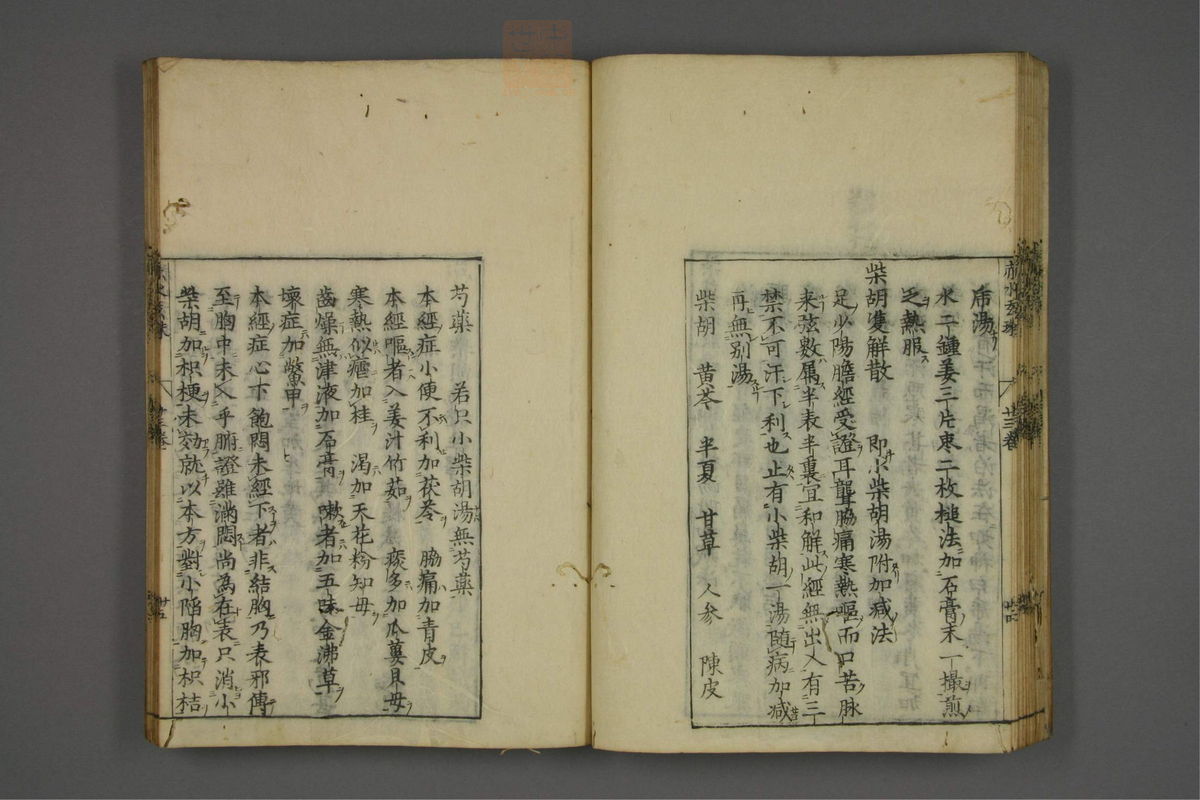 帝湯
水二鍾姜三片枣二枚槌法加石膏末一撮煎
之熱服
柴胡雙解散　即小柴胡湯附加减法
足少陽膽經受證耳聾脇痛寒熱嘔而口苦脉
来弦數属半表半裏宜和解此經無出入有三
禁不可汗下利也止有小柴胡一湯随病加减
再無别湯
柴胡　黄芩　半夏　甘草　人参　陳皮
芍藥　若只小柴胡湯無芍藥
本經症小便不利加茯苓　脇痛加青皮
本經嘔者入姜汁竹茹　痰多加瓜蔞貝母
寒熱似瘧加桂　渴加天花粉知母
齒燥無津液加石膏　嗽者加五味金沸草
壞症加鱉甲
本經症心下飽悶未經下者非結胸乃表邪傳
至胸中未入乎腑證雖滿悶尚為在表只消小
柴胡加枳梗未効就以本方對小陷胸加枳桔